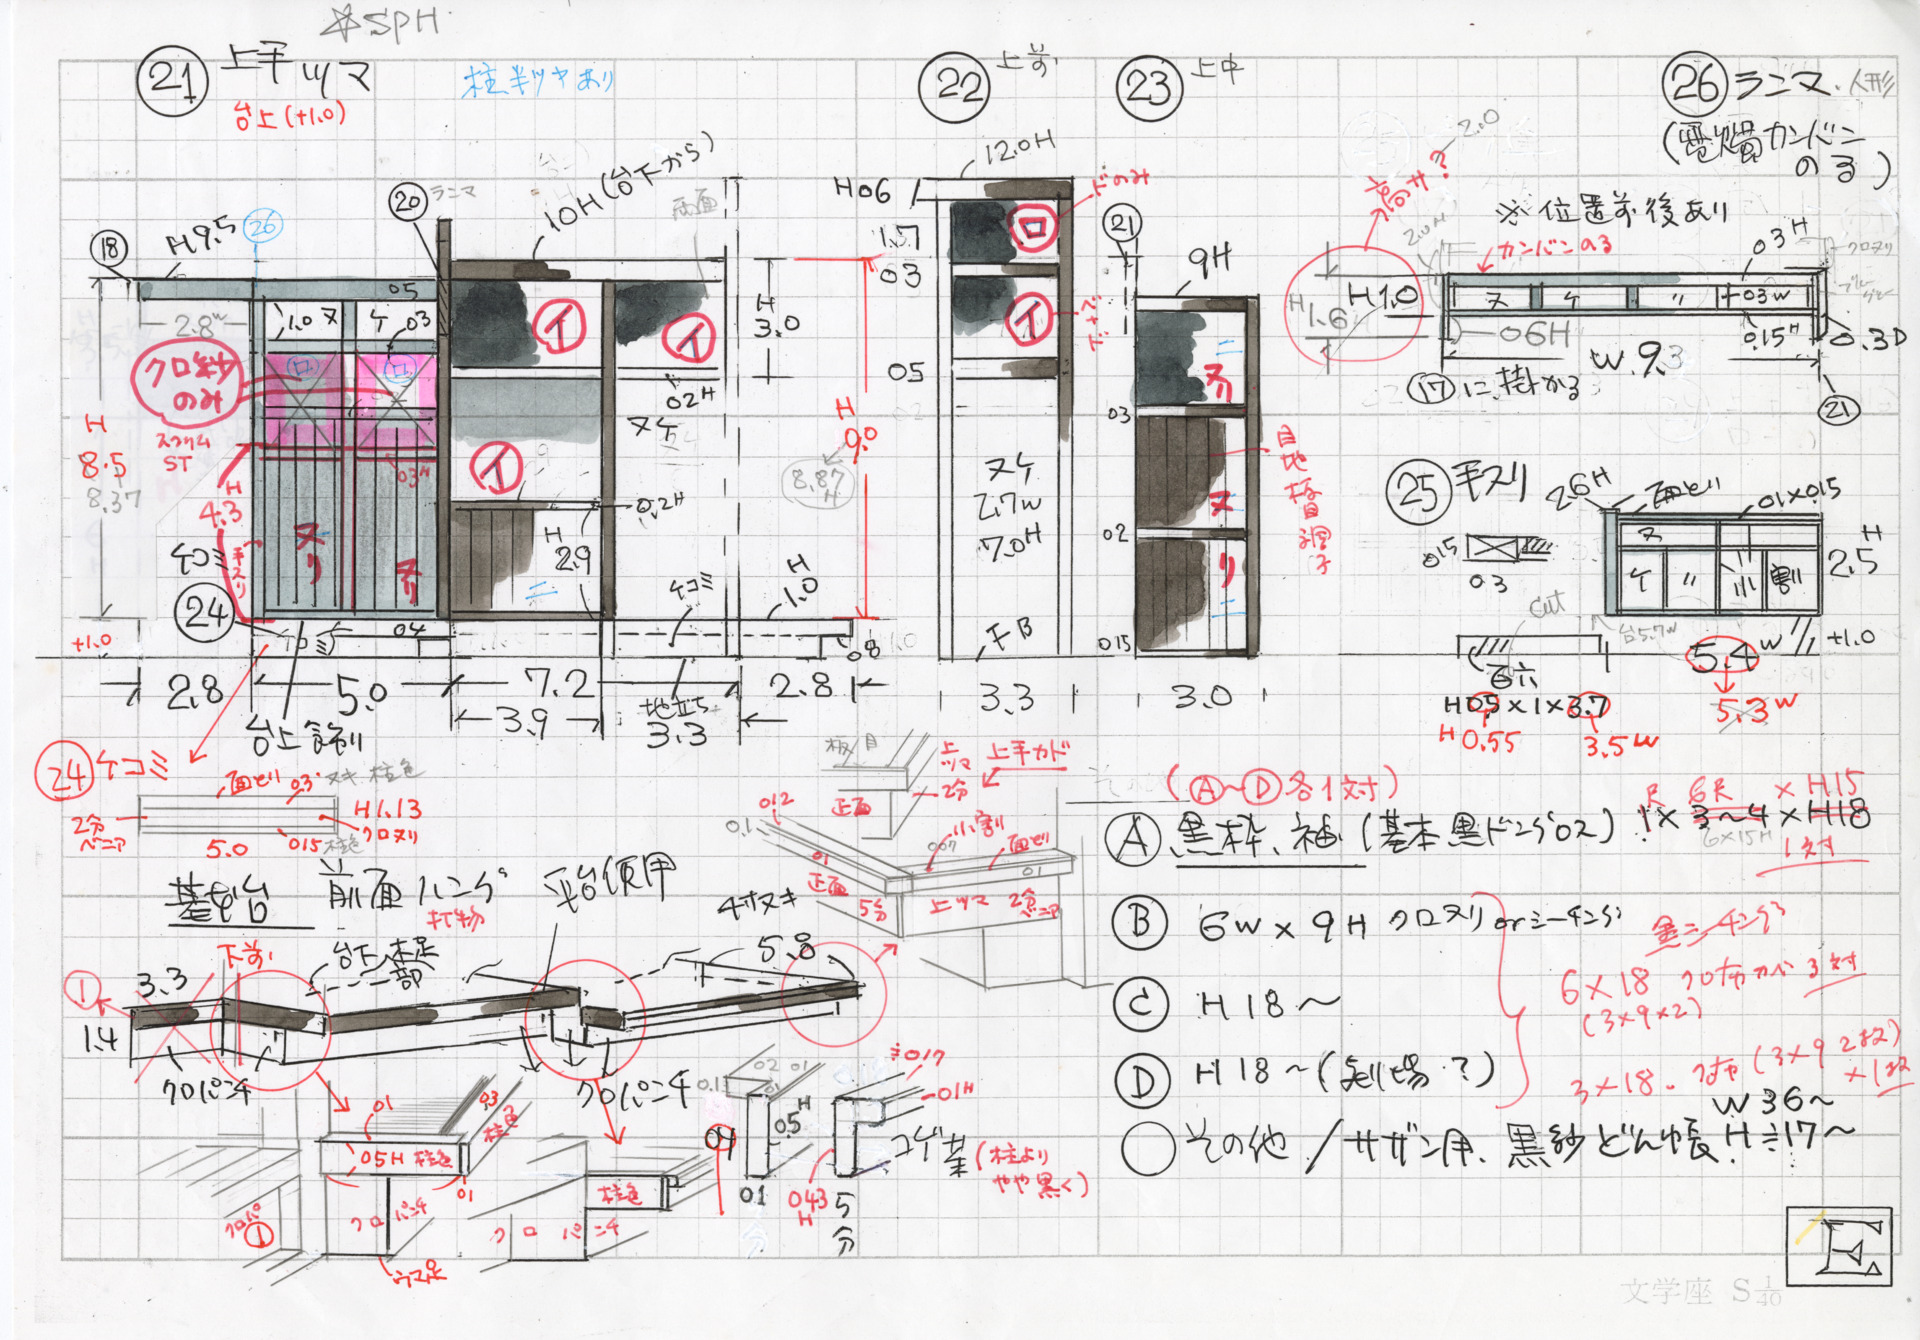 ☆SPH
㉑ 上手ツマ
台上(+1.0)
柱半ツヤあり
⑱
H9.5
㉖
⑳ ランマ
10H(台下から)
両面
05
2.8w
1.0
ヌケ
03
クロ紗
のみ
ロ
ロ
イ
イ
イ
H
3.0
02H
ヌケ
スクリム
ST
03H
H
8.5
8.37
H
4.3
ケコミ
手スリ
ヌリ
ヌリ
㉔
0.2H
H
2.9
ニ
ケコミ
H
1.0
H
9.0
8.87
H
+1.0
04
08
2.8
5.0
7.2
2.8
3.9
地立ち
3.3
台上飾り
㉒ 上前
12.0H
H06
1.7
03
05
ロ
イ
ヌケ
2.7w
7.0H
FB
3.3
㉓ 上中
㉑
9H
03
02
015
ニ
ヌリ
ヌ
リ
ニ
目地板目調子
3.0
㉖ ランマ.人形
(電燭カンバン
のる)
2.0
高サ?
※位置前後あり
カンバンのる
03H
クロヌリ
H
1.6
H1.0
2.0H
ヌ ケ 〃
03w
06H
0.15H
0.3D
W.9.3
⑰に掛かる
㉑
㉕ 手スリ
26H
面ビリ
01×015
015
0.3
ヌ
ケ 〃 小割
H
2.5
cut
台5.7w
5.4w
+1.0
5.3w
H05×1×3.7
H0.55
3.5w
㉔ ケコミ
面ビリ
03
ヌキ 柱色
2分
ベニア
H1.13
クロヌリ
5.0
015
柱色
板目
正面
上ツマ
上手カド
2分
012
0.1
01
正面
5分
小割
007
面ビリ
01
上ツマ
2分ベニア
基礎台
前面ハング
打物
平台使用
4寸ヌキ
台下へ足
一部
下前
3.3
①
1.4
5.8
クロパンチ
クロパンチ
01
03
柱色
05H 柱色
01
クロパ
①
クロ パンチ
ウマ足
柱色
クロ パンチ
02
01
01
0.5H
04
01
≒017
01H
043
H
5分
コゲ茶
(柱より
やや黒く)
(Ⓐ〜Ⓓ各1対)
Ⓐ 黒枠、袖(基本黒ドンゲロス) 1×3〜4×H18
R 6R ×H15
6×15H
1対
Ⓑ 6W×9H クロヌリorシーチング
黒シーチング
6×18 クロ布カバ 3対
(3×9×2)
Ⓒ H18〜
Ⓓ H18〜(劇場?)
3×18. 1対 (3×9 2枚)
×1対
W36〜
◯ その他/サザン用.黒紗どん帳.H≒17〜
E
文学座 S1/40